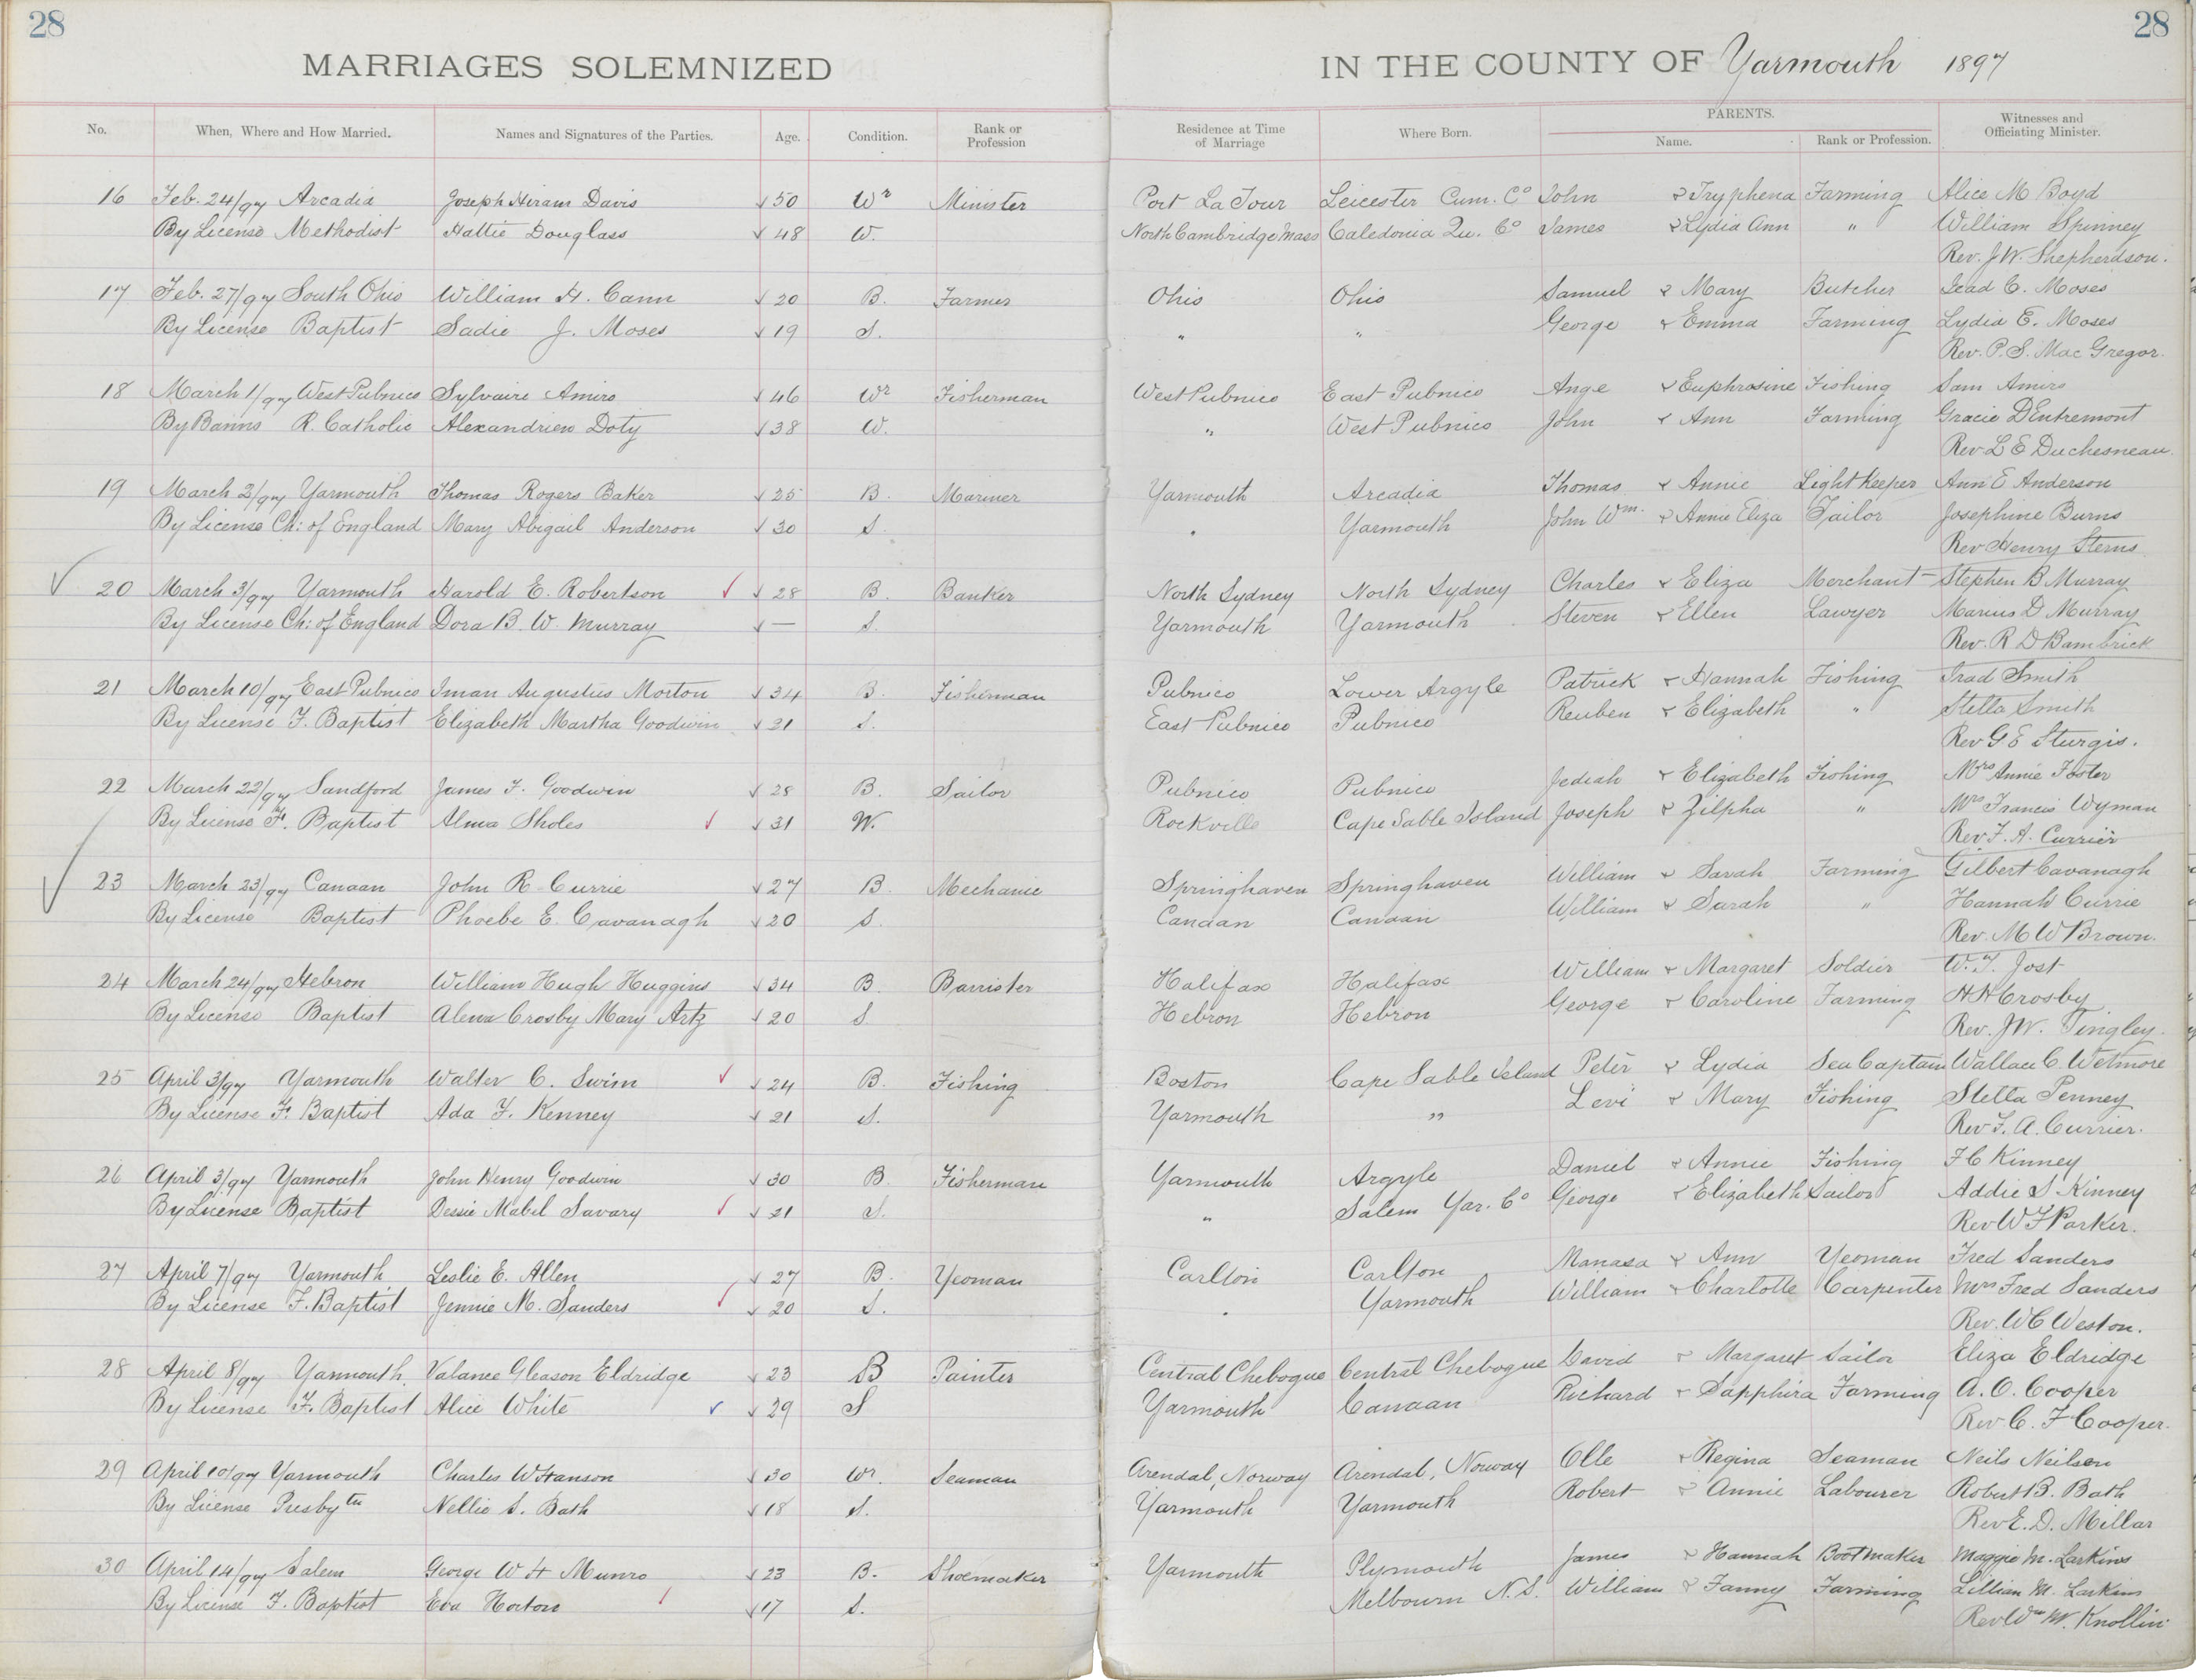 28 28
MARRIAGES SOLEMNIZED IN THE COUNTY OF Yarmouth 1897
No. When, Where and How Married. Names and Signatures of the Parties. Age. Condition. Rank or Profession Residence at Time of Marriage Where Born. PARENTS. Name. Rank or Profession. Witnesses and Officiating Minister.
16 Feb. 24/97 Arcadia Joseph Hiram Davis 50 Wr Minister Port La Tour Leicester Cum. Co John & Tryphena Farming Alice M Boyd
By License Methodist Hattie Douglass 48 W. North Cambridge Mass Caledonia Qu. Co James & Lydia Ann " William Spinney
Rev. J. W. Shepherdson.
17 Feb. 27/97 South Ohio William H. Cann 20 B. Farmer Ohio Ohio Samuel & Mary Butcher C. Moses
By License Baptist Sadie J. Moses 19 S. " " George & Emma Farming Lydia E. Moses
Rev. P. S. Mac Gregor.
18 March 1/97 West Pubnico Sylvaire Amiro 46 Wr Fisherman West Pubnico East Pubnico Ange & Euphrosine Fishing Sam Amiro
By Banns R. Catholic Alexandrien Doty 38 W. " West Pubnico John & Ann Farming Gracie DEntremont
Rev L E Duchesneau.
19 March 2/97 Yarmouth Thomas Rogers Baker 25 B. Mariner Yarmouth Arcadia Thomas & Annie Light Keeper Ann E Anderson
By License Ch: of England Mary Abigail Anderson 30 S. " Yarmouth John Wm. & Annie Eliza Tailor Josephine Burns
Rev Henry Sterns
20 March 3/97 Yarmouth Harold E. Robertson 28 B. Banker North Sydney North Sydney Charles & Eliza Merchant Stephen B Murray
By License Ch: of England Dora B. W. Murray — S. Yarmouth Yarmouth Steven & Ellen Lawyer Marius D Murray
Rev. R D Bambrick
21 March 10/97 East Pubnico Iman Augustus Morton 34 B. Fisherman Pubnico Lower Argyle Patrick & Hannah Fishing Smith
By License F. Baptist Elizabeth Martha Goodwin 21 S. East Pubnico Pubnico Reuben & Elizabeth " Stella Smith
Rev G E Sturgis.
22 March 22/97 Sandford James F. Goodwin 28 B. Sailor Pubnico Pubnico Jediah & Elizabeth Fishing Mrs Annie Foster
By License F. Baptist Alma Sholes 31 W. Rockville Cape Sable Island Joseph & Zilpha " Mrs Francis Wyman
Rev F. A. Currier
23 March 23/97 Canaan John R Currie 27 B. Mechanic Springhaven Springhaven William & Sarah Farming Gilbert Cavanagh
By License Baptist Phoebe E. Cavanagh 20 S. Canaan Canaan William & Sarah " Hannah Currie
Rev. M W Brown.
24 March 24/97 Hebron William Hugh Huggins 34 B. Barrister Halifax Halifax William & Margaret Soldier W. T. Jost
By License Baptist Alena Crosby Mary Artz 20 S Hebron Hebron George & Caroline Farming H H Crosby
Rev. J W. Tingley.
25 April 3/97 Yarmouth Walter C. Swim 24 B. Fishing Boston Cape Sable Island Peter & Lydia Sea Captain Wallace C. Wetmore
By License F. Baptist Ada F. Kenney 21 S. Yarmouth " Levi & Mary Fishing Stella Penney
Rev F. A. Currier.
26 April 3/97 Yarmouth John Henry Goodwin 30 B. Fisherman Yarmouth Argyle Daniel & Annie Fishing F C Kinney
By License Baptist Dessie Mabel Savary 21 S. " Salem Yar. Co George & Elizabeth Sailor Addie S Kinney
Rev W F Parker.
27 April 7/97 Yarmouth Leslie E. Allen 27 B. Yeoman Carlton Carlton Manasa & Ann Yeoman Fred Sanders
By License F. Baptist Jennie M. Sanders 20 S. " Yarmouth William & Charlotte Carpenter Mrs Fred Sanders
Rev. W C Weston.
28 April 8/97 Yarmouth. Valance Gleason Eldridge 23 B Painter Central Chebogue Central Chebogue David & Margaret Sailor Eliza Eldridge
By License F. Baptist Alice White 29 S Yarmouth Canaan Richard & Sapphira Farming A. O. Cooper
Rev C. F Cooper.
29 April 10/97 Yarmouth Charles W Hanson 30 Wr. Seaman Arendal, Norway Arendal, Norway Olle & Regina Seaman Neils Neilsen
By License Presbytn Nellie S. Bath 18 S. Yarmouth Yarmouth Robert & Annie Labourer Robert B. Bath
Rev E. D. Millar
30 April 14/97 Salem George W H Munro 23 B. Shoemaker Yarmouth Plymouth James & Hannah Bootmaker Maggie M. Larkins
By License F. Baptist Eva Horton 17 S. Melbourn N.S. William & Fanny Farming Lillian M. Larkins
Rev Wm M. Knollin